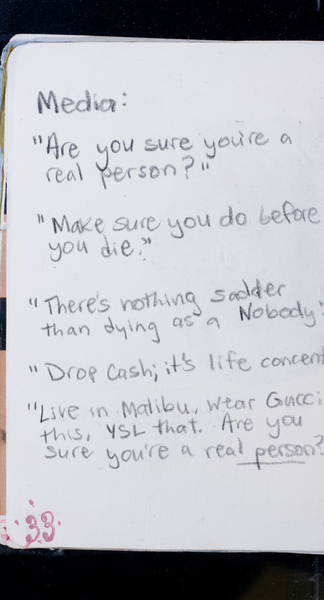 Media:
"Are you sure you're a
real person?"
"Make sure you do before
you die."
"There's nothing sadder
than dying as a Nobody"
"Drop Cash; it's life concent
"Live in Malibu, wear Gucci
this, YSL that. Are you
sure you're a real person?
33